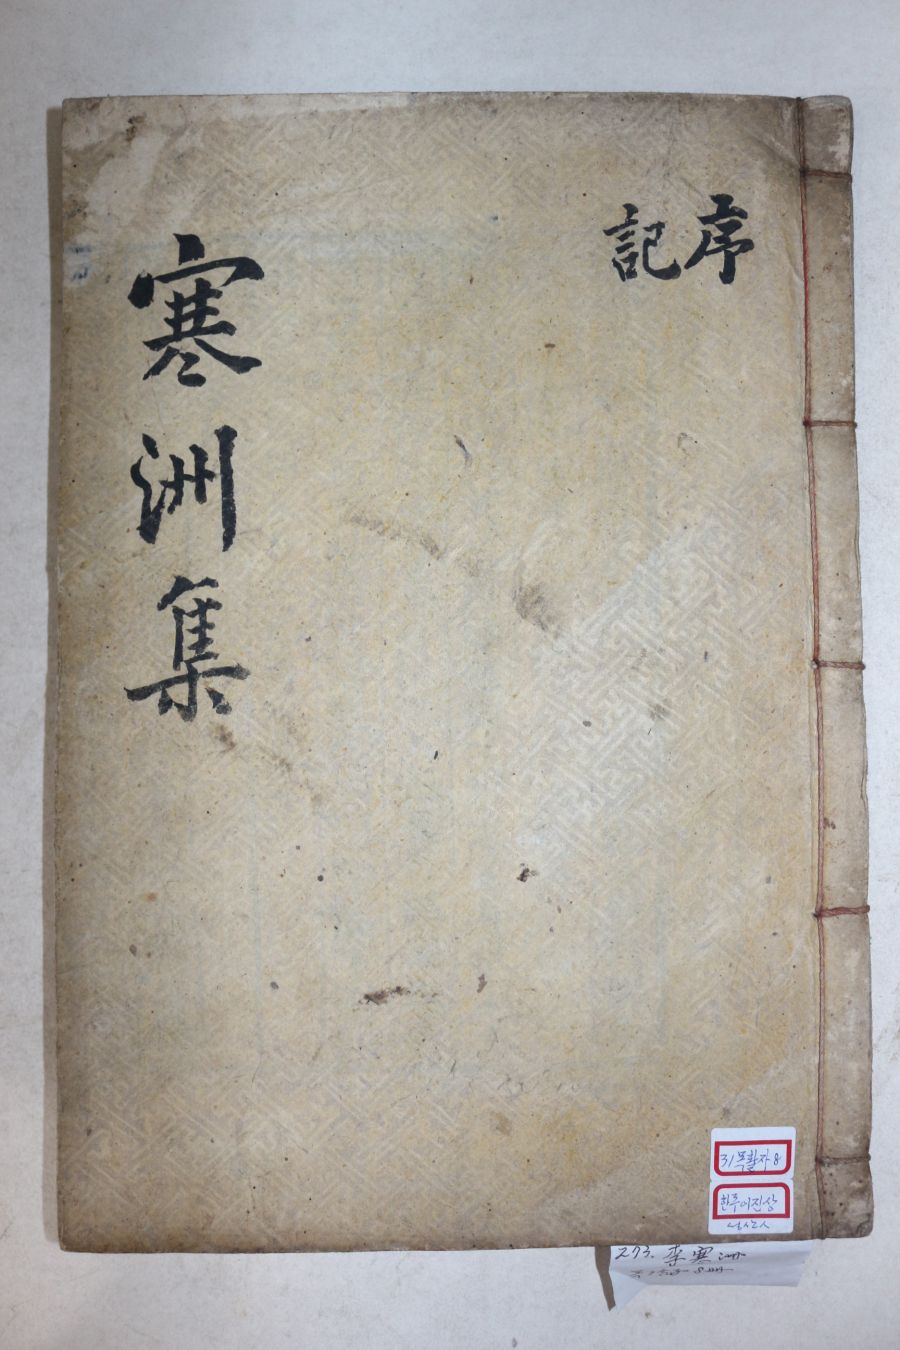 序
記
寒洲集
31목활자8
한주이진상
273. 李寒洲